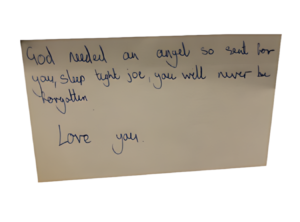 God needed an angel so sent for
you, sleep tight joe, you will never be
forgotten
Love you.